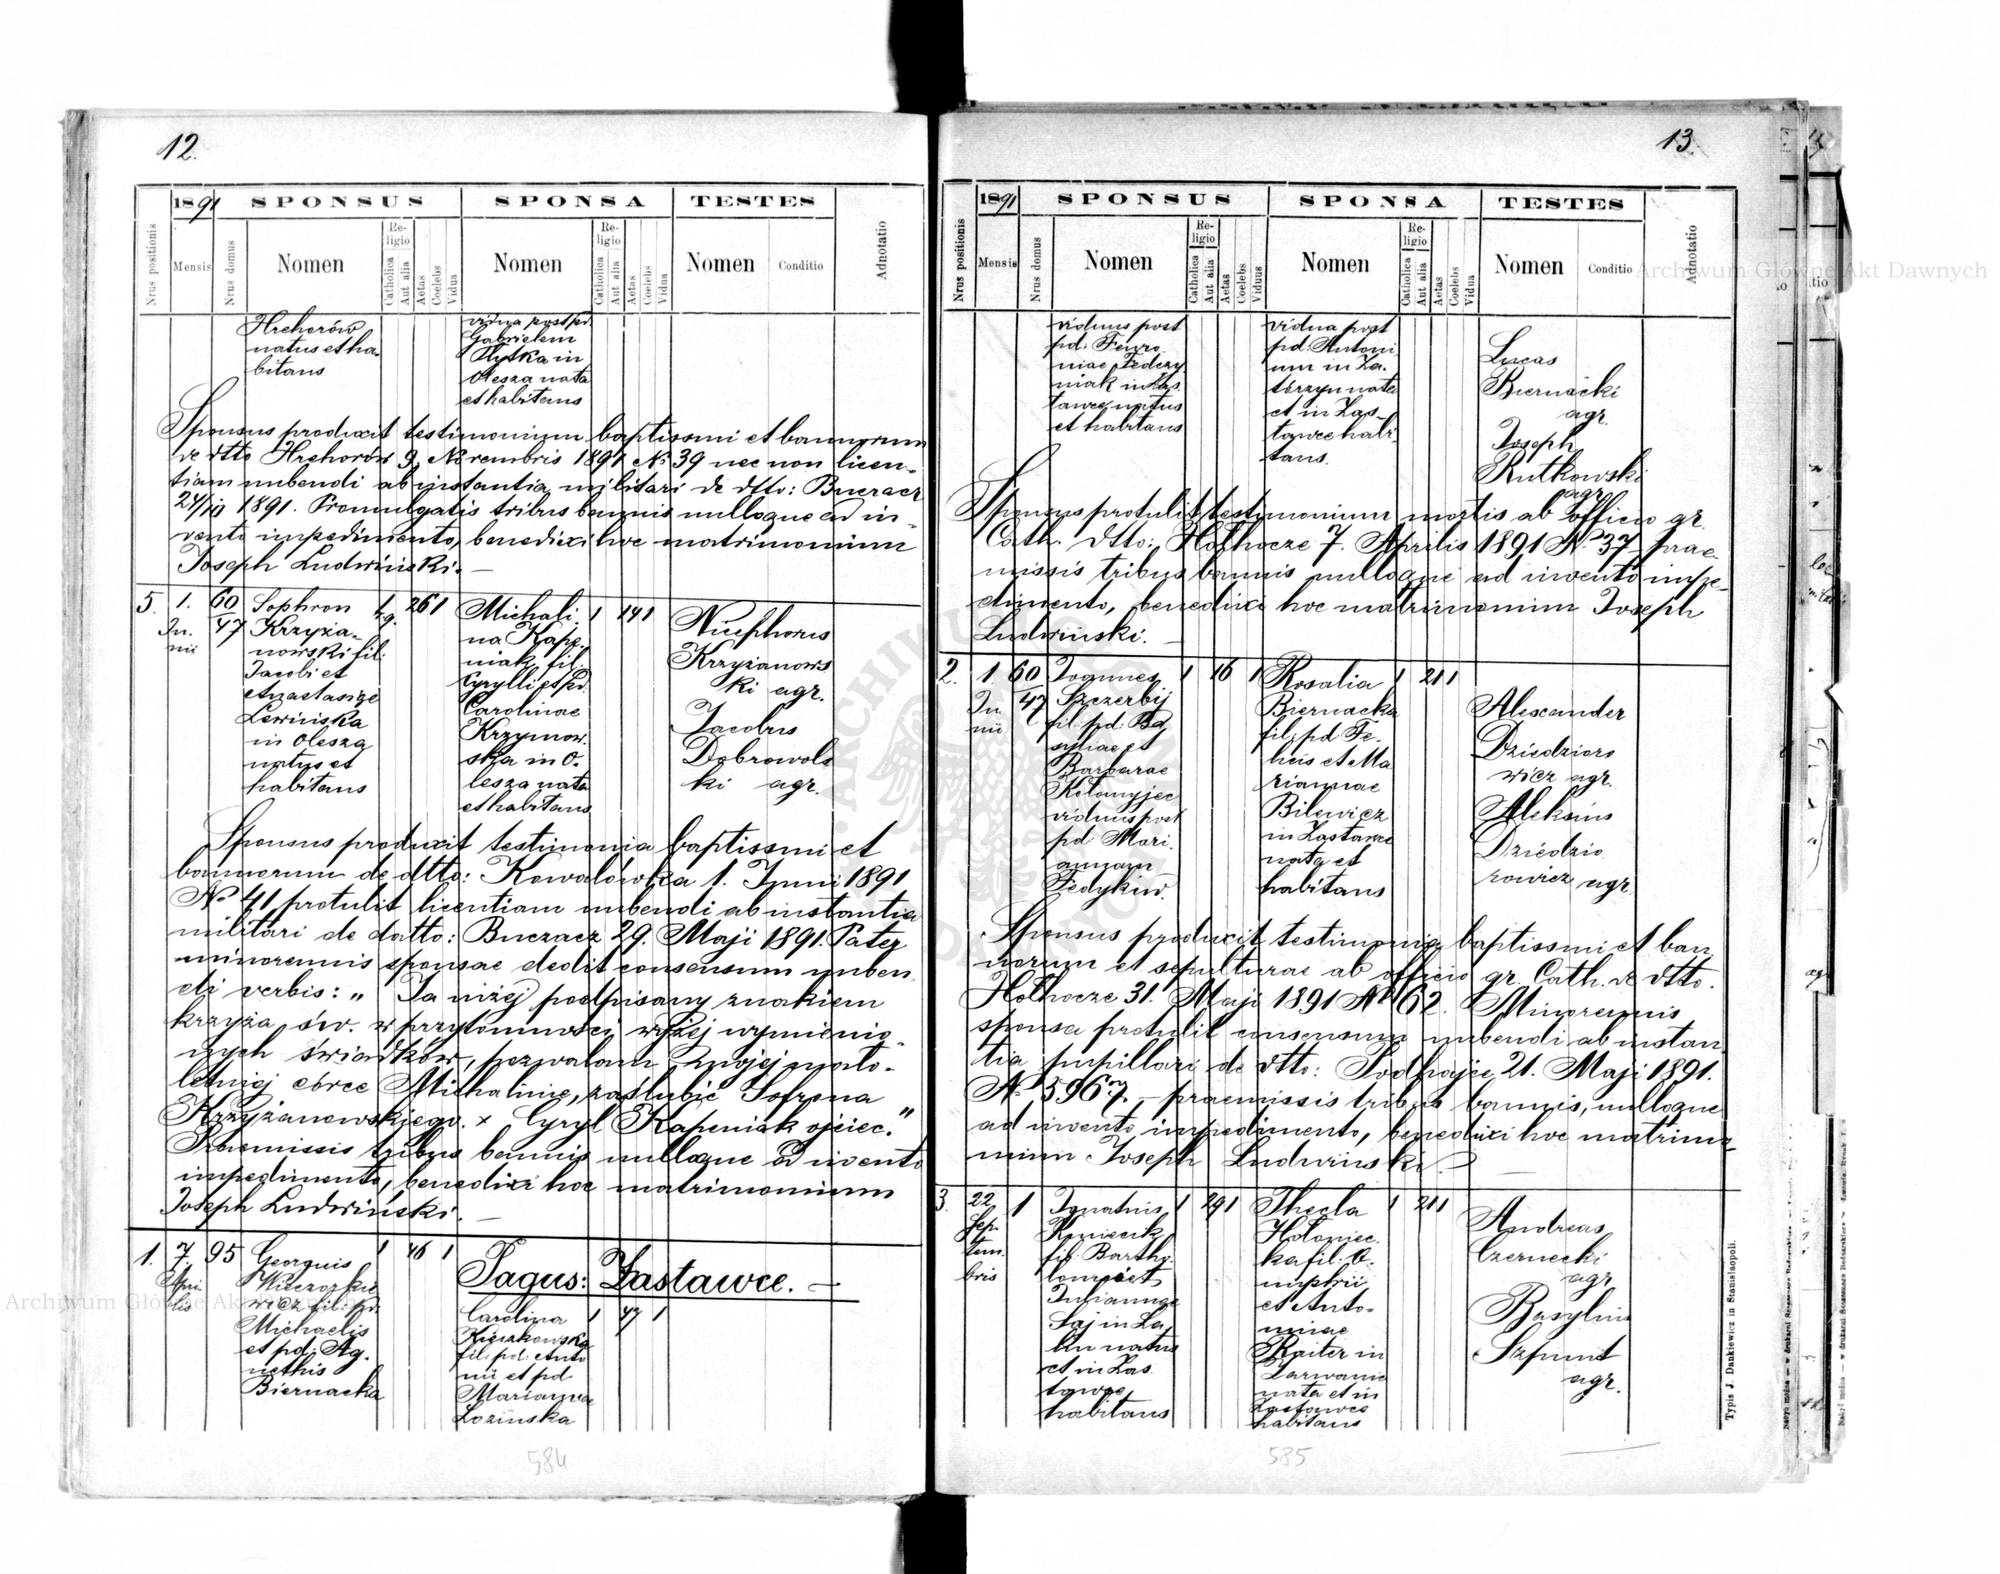 12.
1891
SPONSUS
SPONSA
TESTES
Nrus positionis
Mensis
Nrus domus
Nomen
Religio
Catholica
Aut alia
Aetas
Coelebs
Vidua
Nomen
Religio
Catholica
Aut alia
Aetas
Coelebs
Vidua
Nomen
Conditio
Adnotatio
Hrehorów
natus et ha
bitans
vidua post pd.
Gabrielem
Hytka in
Olesza nata
et habitans
Sponsus produxit testimonium baptissmi et bannorum
de dtto Hrehorów 9. Novembris 1891 No 39 nec non licen-
tiam nubendi ab instantia militari de dtto: Buczacz
1891. Promulgatis tribus bannis nulloque ad in-
vento impedimento, benedixi hoc matrimonium
Joseph Ludwiński. —
5. 1. Ju. nii
60
47
Sophron
Krzyża-
nowski fil.
Jacobi et
Anastasiae
Lewińska
in Olesza
natus et
habitans
26 1
Michali
na Kape
niak fil.
Cyrylli et pd.
Carolinae
Krzymow.
ska in O.
lesza nata
et habitans
1
Nicephorus
Krzyżanows
ki agr.
Jacobus
Dobrowols
ki agr.
Sponsus produxit testimonia baptissmi et
bannorum de dtto: Kowalówka 1. Junii 1891
No 41 protulit licentiam nubendi ab instantia
militari de datto: Buczacz 29. Maji 1891. Pater
minorennis sponsae dedit consensum nuben
di verbis: „ Ja niżej podpisany znakiem
krzyża św. w przytomności wyżej wymienio-
nych świadków, pozwalam mojej mało-
letniej córce Michalinie, zaślubić Sofrona
Krzyżanowskiego. x Cyryl Kapeniak ojciec."
Praemissis tribus bannis nulloque ad invento
impedimento, benedixi hoc matrimonium
Joseph Ludwiński. —
1. 7. Apri lis
95
Georgius
wicz fil. pd.
Michaelis
et pd. Ag.
nethis
Biernacka
1 46 1
Pagus: Zastawce. —
Carolina
fil. pd. Anto
nii et pd
Marianna
Łozińska
1 47 1
584
13.
1891
SPONSUS
SPONSA
TESTES
Nrus positionis
Mensis
Nrus domus
Nomen
Religio
Catholica
Aut alia
Aetas
Coelebs
Vidus
Nomen
Religio
Catholica
Aut alia
Aetas
Coelebs
Vidua
Nomen
Conditio
Adnotatio
viduus post
pd. Feuro
niae Fedczy
niak in Zas
tawce natus
et habitans
vidua post
pd. Antoni
um in Za.
turzyn nata
et in Zas-
tawce habi
tans.
Lucas
Biernacki
agr.
Joseph
Rutkowski
agr.
Sponsus protulit testimonium mortis ab officio gr.
Cath. dtto: Hołhocze 7. Aprilis 1891 No 37. Prae-
missis tribus bannis nulloque ad invento impe-
dimento, benedixi hoc matrimonium Joseph
Ludwiński. —
2. 1. Ju nii
60
47
Joannes
Szczerbij
fil. pd. Ba
syliae et
Barbarae
Kołomyjec
viduus post
pd. Mari.
annam
Fedykiw.
1 46 1
Rosalia
Biernacka
fil. pd Fe-
licis et Ma
riannae
Bilewicz
in Zastawce
nata et
habitans
1 21 1
Alexander
Dziedzioro
wicz agr.
Aleksius
Dziedzio
rowicz agr
Sponsus produxit testimonia baptissmi et ban
norum et sepulturae ab officio gr. Cath. de dtto.
Hołhocze 31. Maji 1891 No 62. Minorennis
sponsa protulit consensum nubendi ab instan
tia pupillari de dtto: Podhajce 21. Maji 1891.
No 5967. — praemissis tribus bannis, nulloque
ad invento impedimento, benedixi hoc matrimo
nium Joseph Ludwiński —
3. 22 Sep. tem. bris
1
Ignatius
fil. Bartho
lomaei et
Juliannae
Zaj in La
natus
et in Zas
tawce
habitans
1 29 1
Thecla
Hołoniec.
ka fil. O.
nuphrii
et Anto-
niae
Raiter in
nata et in
Zastawce
habitans
1 21 1
Andreas
Czernecki
agr
Basylius
Szpunt
agr.
Typis J. Dankiewicz in Stanislaopoli.
585
Archiwum Główne Akt Dawnych
Archiwum Główne Akt Dawnych